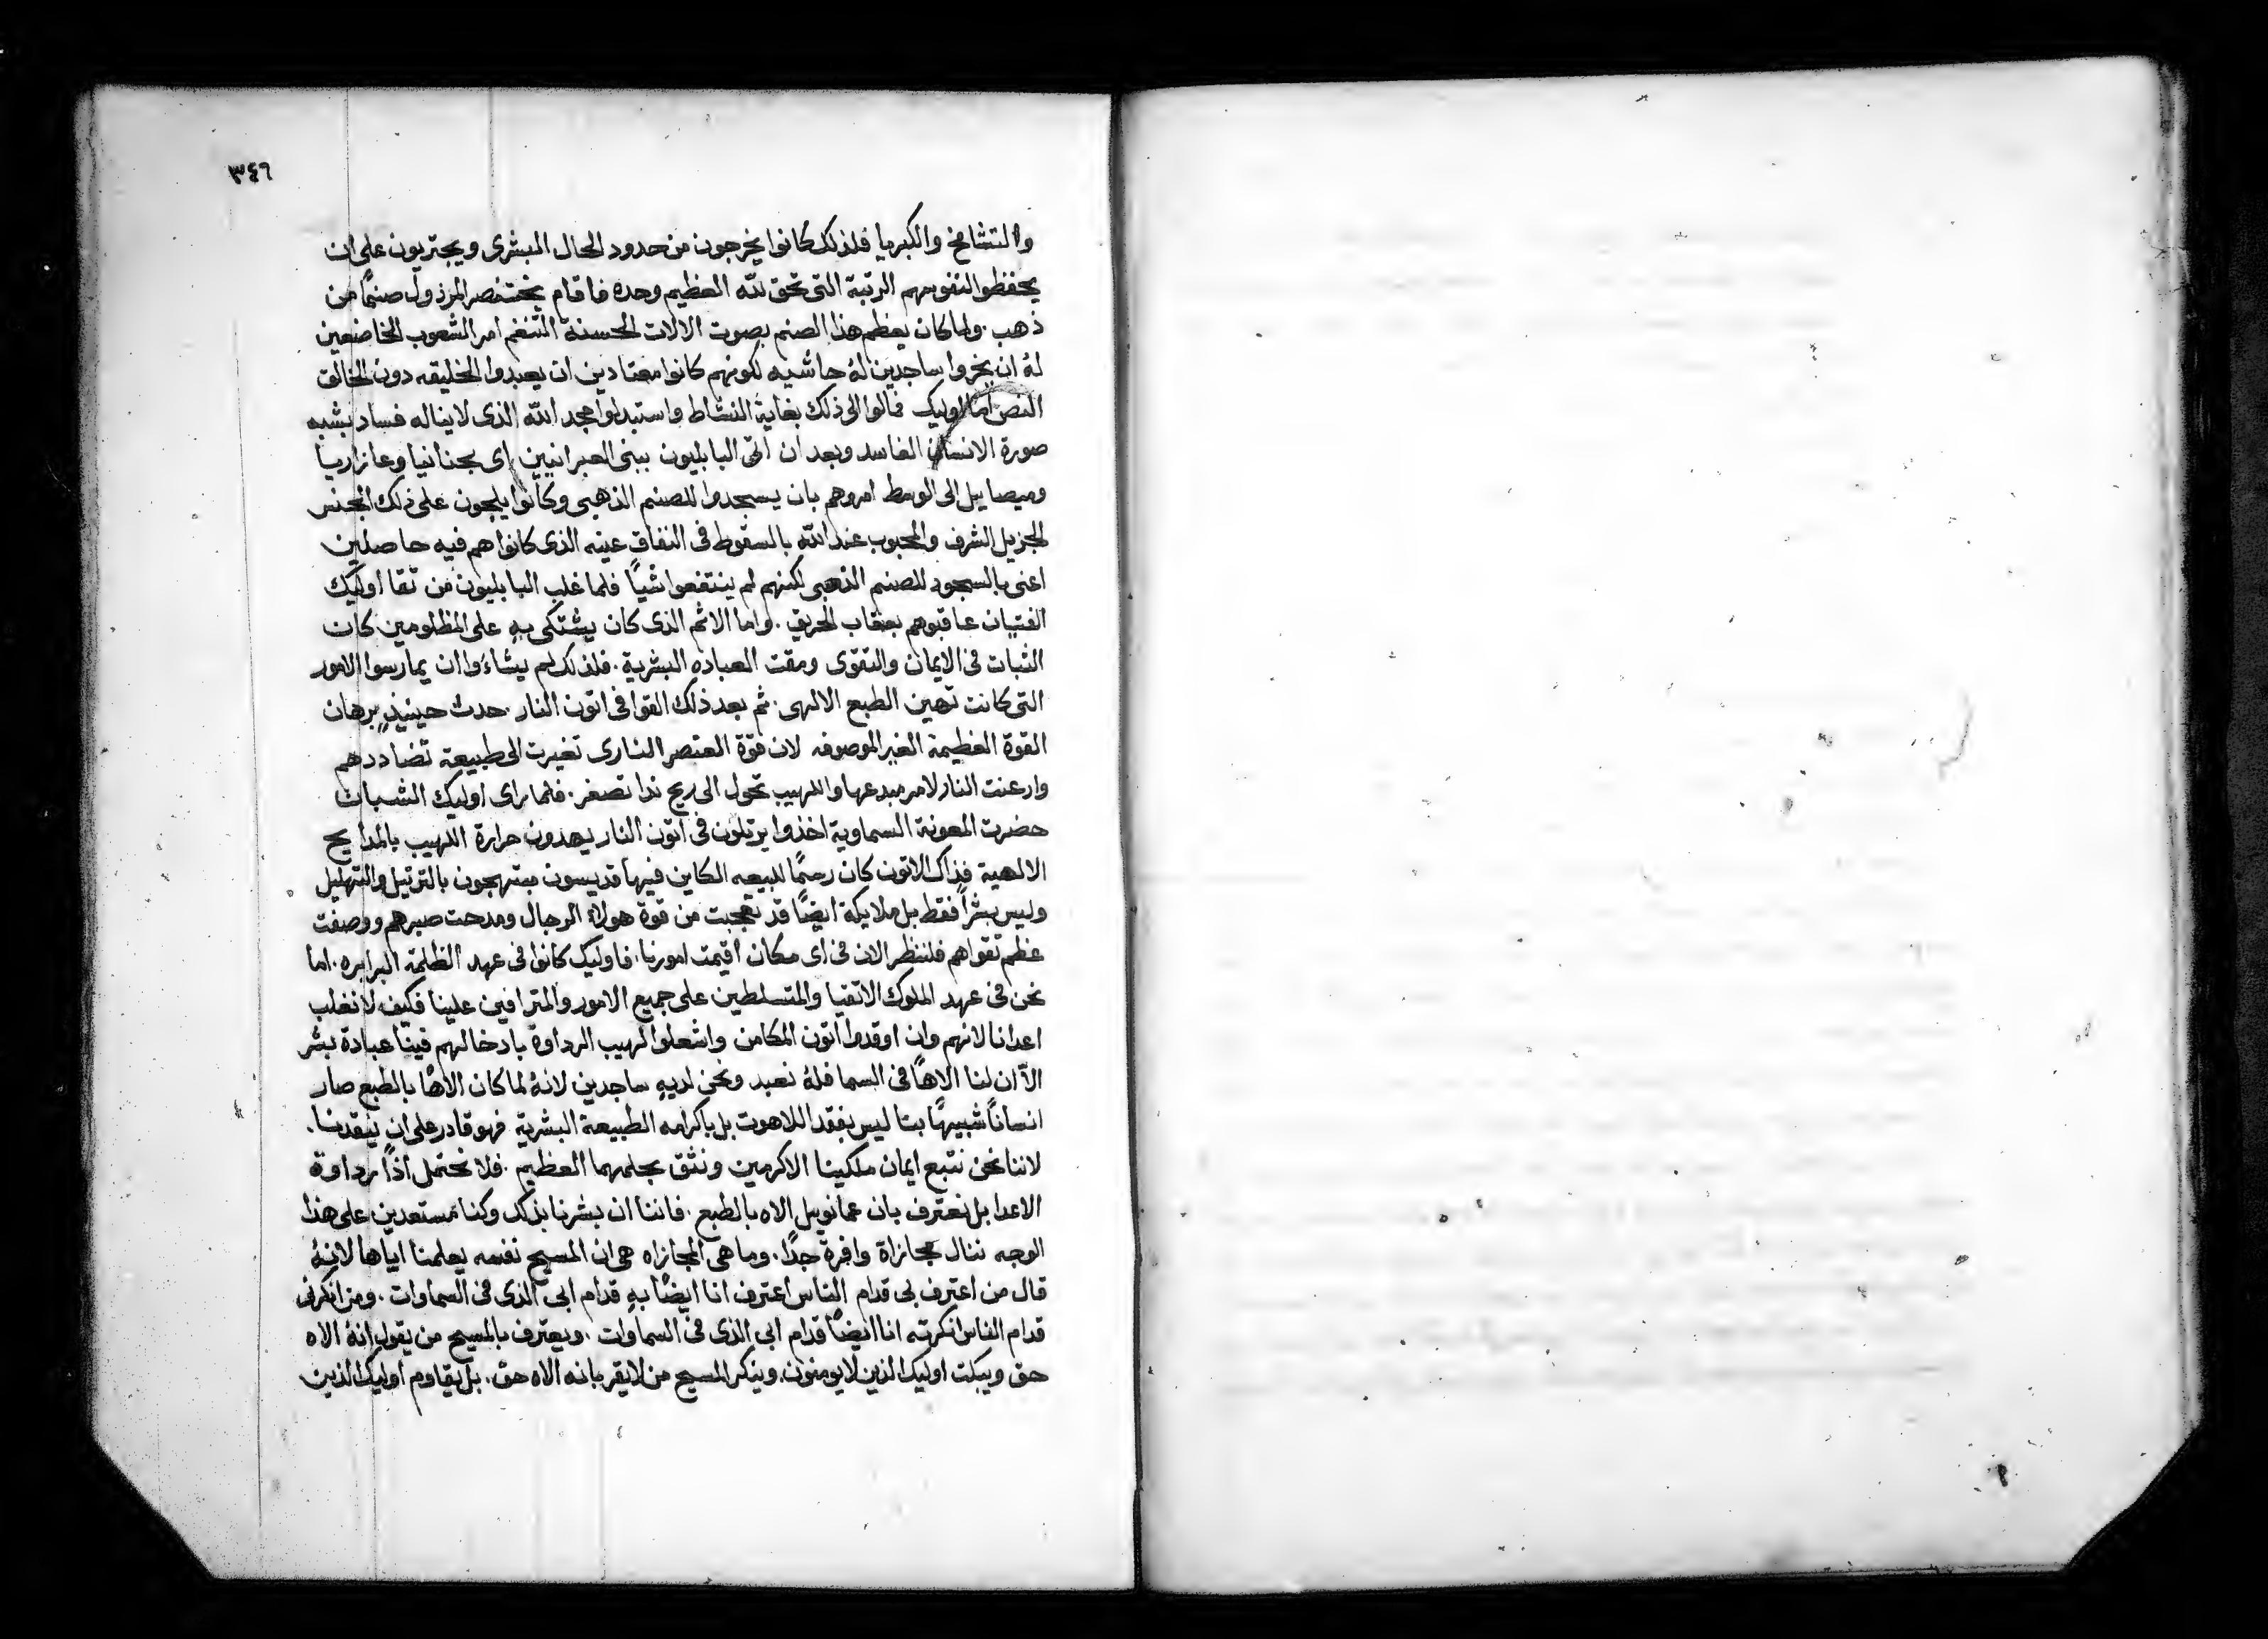 ٣٤٦
والتشامخ والكبريا فلذلك كانوا يخرجون من حدود الحال البشرى ويجتريون على ان
يحفظوا لنفوسهم الرتبة التى تحق لله العظيم وحده فاقام بختنصر المرذول صنمًا من
ذهب. ولما كان يعظم هذا الصنم بصوت الالات الحسنة التنغم امر الشعوب الخاضعين
لهُ ان يخروا ساجدين لهُ حاشيه لكونهم كانوا معتادين ان يعبدوا الخليقه دون الخالق
النص اما اوليك فمالوا الى ذلك بغاية النشاط واستبدلوا مجد الله الذى لا يناله فساد بشبه
صورة الانسان الفاسد وبعد ان اتى البابليون ببنى العبرانيين اى بحنانيا وعازاريا
وميصاييل الى الوسط امروهم بان يسجدوا للصنم الذهبى وكانوا يلجون على ذلك الجنس
الجزيل الشرف والمحبوب عند الله بالسقوط فى النفاق عينه الذى كانوا هم فيه حاصلين
اعنى بالسجود للصنم الذهبى لكنهم لم ينتفعوا شياً فلما غلب البابليون من تقا اوليك
الفتيان عاقبوهم بعقاب الحريق. واما الاثم الذى كان يشتكى بهِ على المظلومين كان
الثبات فى الايمان والتقوى ومقت العباده البشرية. فلذلك لم يشاءَوا ان يمارسوا الامور
التى كانت تهين الطبع الالهى. ثم بعد ذلك القوا فى اتون النار. حدث حينيذٍ برهان
القوة العظيمة الغير الموصوفه لان قوّة العنصر النارى تغيرت الى طبيعة تضاددهم
وارعنت النار لامر مبدعها واللهيب تحول الى ريح ندا تصفر. فلما راى اوليك الشبان
حضرت المعونة السماوية اخذوا يرتلون فى اتون النار يهدون حرارة اللهيب بالمدايح
الالهية فذاك الاتون كان رسمًا للبيعه الكاين فيها قديسون مبتهجون بالترتيل والتهليل
وليس بشراً فقط بل ملايكة ايضًا قد تعجبت من قوة هولاء الرجال ومدحت صبرهم ووصفت
عظم تقواهم فلننظر الان فى اى مكان اقيمت امورنا. فاوليك كانوا فى عهد الظلمة البرابره. اما
نحن فى عهد الملوك الاتقيا والمتسلطين على جميع الامور والمترافين علينا فكيف لا نغلب
اعدانا لانهم وان اوقدوا اتون المكامن واشعلوا لهيب الرداوة بادخالهم فينا عبادة بشر
الاّ ان لنا الاهًا فى السما فلهُ نعبد ونحن لديهِ ساجدين لانهُ لما كان الاهًا بالطبع صار
انسانًا شبيهًا بنا ليس بفقد اللاهوت بل باكرامه الطبيعة البشرية فهو قادر على ان ينقذنا.
لاننا نحن نتبع ايمان ملكينا الاكرمين ونثق بحلمهما العظيم. فلا نحتمل اذاً رداوة
الاعدا بل نعترف بان عمانوييل الاه بالطبع. فاننا ان بشرنا بذلك وكنا مستعدين على هذا
الوجه ننال مجازاة وافرة جدًا. وما هى المجازاه هى ان المسيح نفسه يعلمنا اياها لانهُ
قال من اعترف بى قدام الناس اعترف انا ايضًا بهِ قدام ابى الذى فى السماوات. ومن انكرنى
قدام الناس انكرته انا ايضًا قدام ابى الذى فى السماوات. ويعترف بالمسيح من يقول انهُ الاه
حق ويبكت اوليك الذين لا يومنون. وينكر المسيح من لا يقر بانه الاه حق. بل يقاوم اوليك الذين